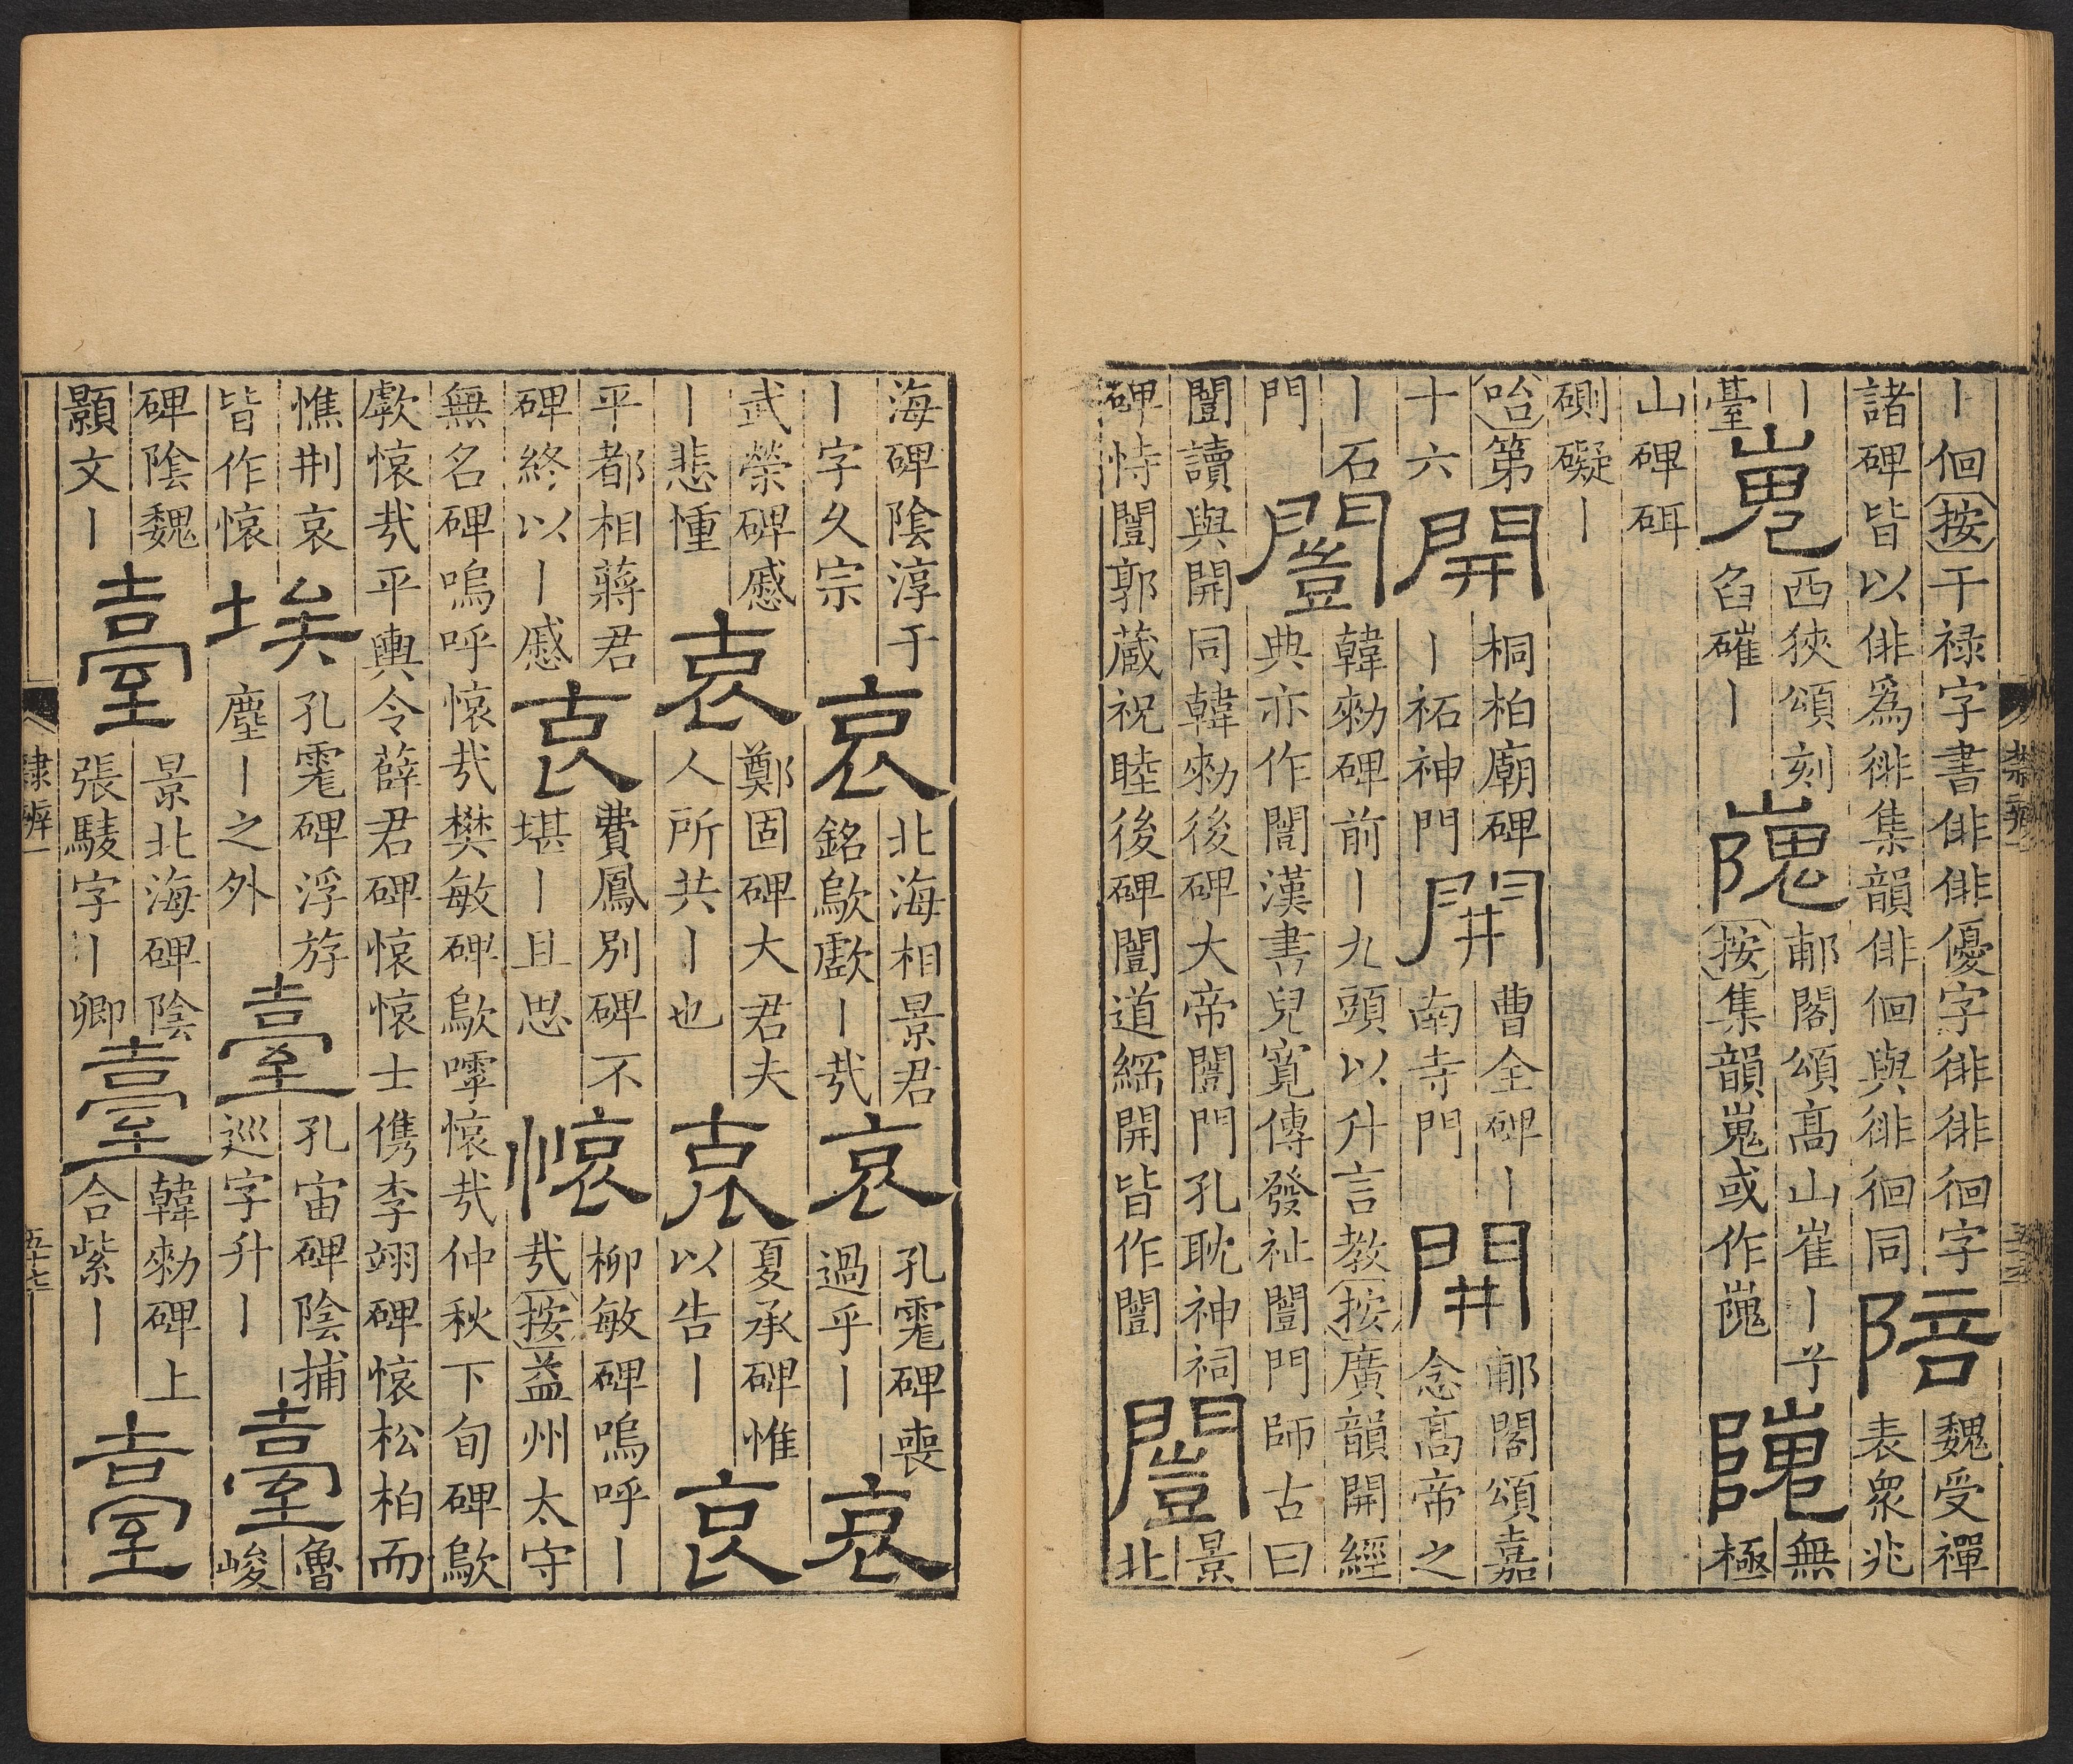 丨徊按干禄字書俳俳優字徘徘徊字
諸碑皆以俳爲徘集韻俳徊與徘徊同
陪
魏受禪
表衆兆
丨
臺
嵬
西狹頌刻
臽磪丨
隗
郙閣頌高山崔丨兮
按集韻嵬或作隗
隗
無
極
山碑
硎礙丨
咍第
十六
開
桐柏廟碑
丨祏神門
開
曹全碑丨
南寺門
開
郙閣頌嘉
念高帝之
丨石
門
闓
韓勑碑前丨九頭以升言教按廣韻開經
典亦作闓漢書兒寬傳發祉闓門師古曰
闓讀與開同韓勑後碑大帝闓門孔耽神祠
碑恃闓郭蔵祝睦後碑闓道綵開皆作闓
闓
景
北
海碑陰淳于
丨字久宗
哀
北海相景君
銘歍歔丨㢤
哀
孔霮碑喪
過乎丨
哀
武榮碑慼
丨悲慟
哀
鄭固碑大君夫
人所共丨也
哀
夏承碑惟
以告丨
哀
平都相蔣君
碑終以丨慼
哀
費鳳別碑不
堪丨且思
懐
柳敏碑嗚呼丨
㢤按益州太守
無名碑嗚呼懐㢤樊敏碑歍嘑懐㢤仲秋下旬碑歍
歔懐㢤平輿令薛君碑懐懐士儁李翊碑懐松柏而
憔荆哀
皆作懐
埃
孔霮碑浮斿
塵丨之外
臺
孔宙碑陰捕
巡字升丨
臺
魯
峻
碑陰魏
顥文丨
臺
景北海碑陰
張駿字丨卿
臺
韓勑碑上
合紫丨
臺
隸辨一
五十七